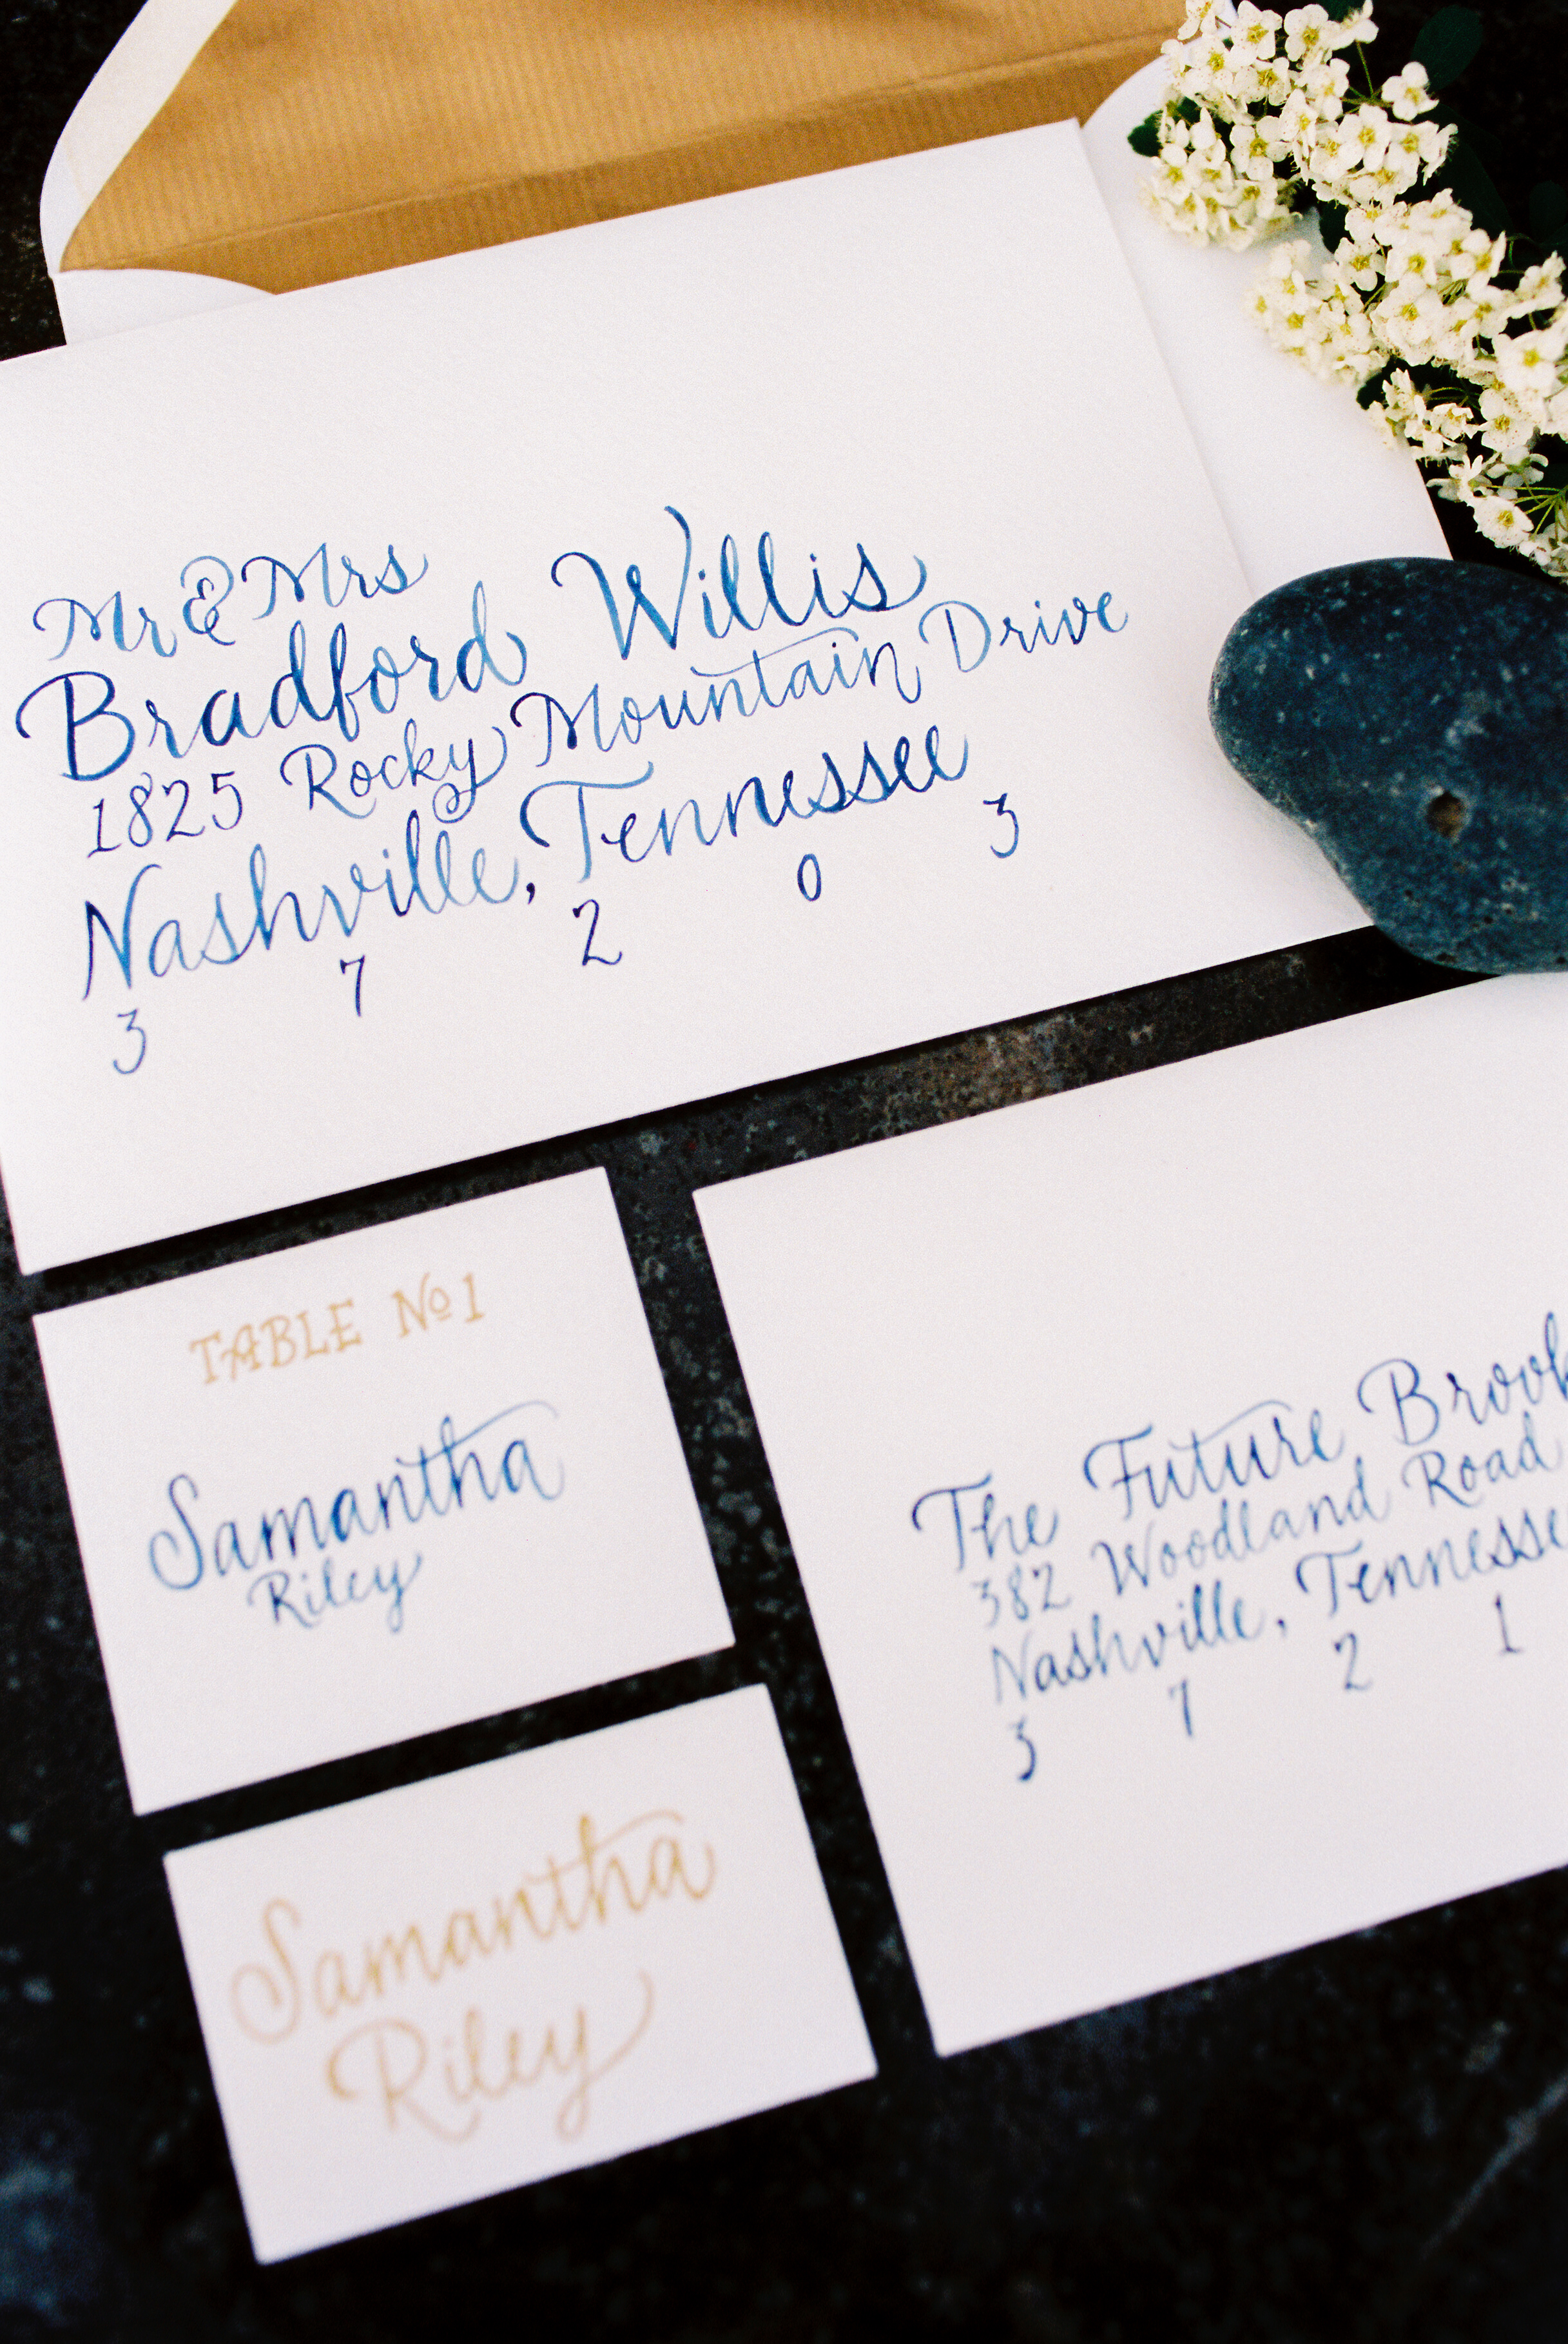 Mr & Mrs
Bradford Willis
1825 Rocky Mountain Drive
Nashville, Tennessee
3 7 2 0 3
TABLE No 1
Samantha
Riley
The Future
382 Woodland Road
Nashville,
3 7 2 1
Samantha
Riley